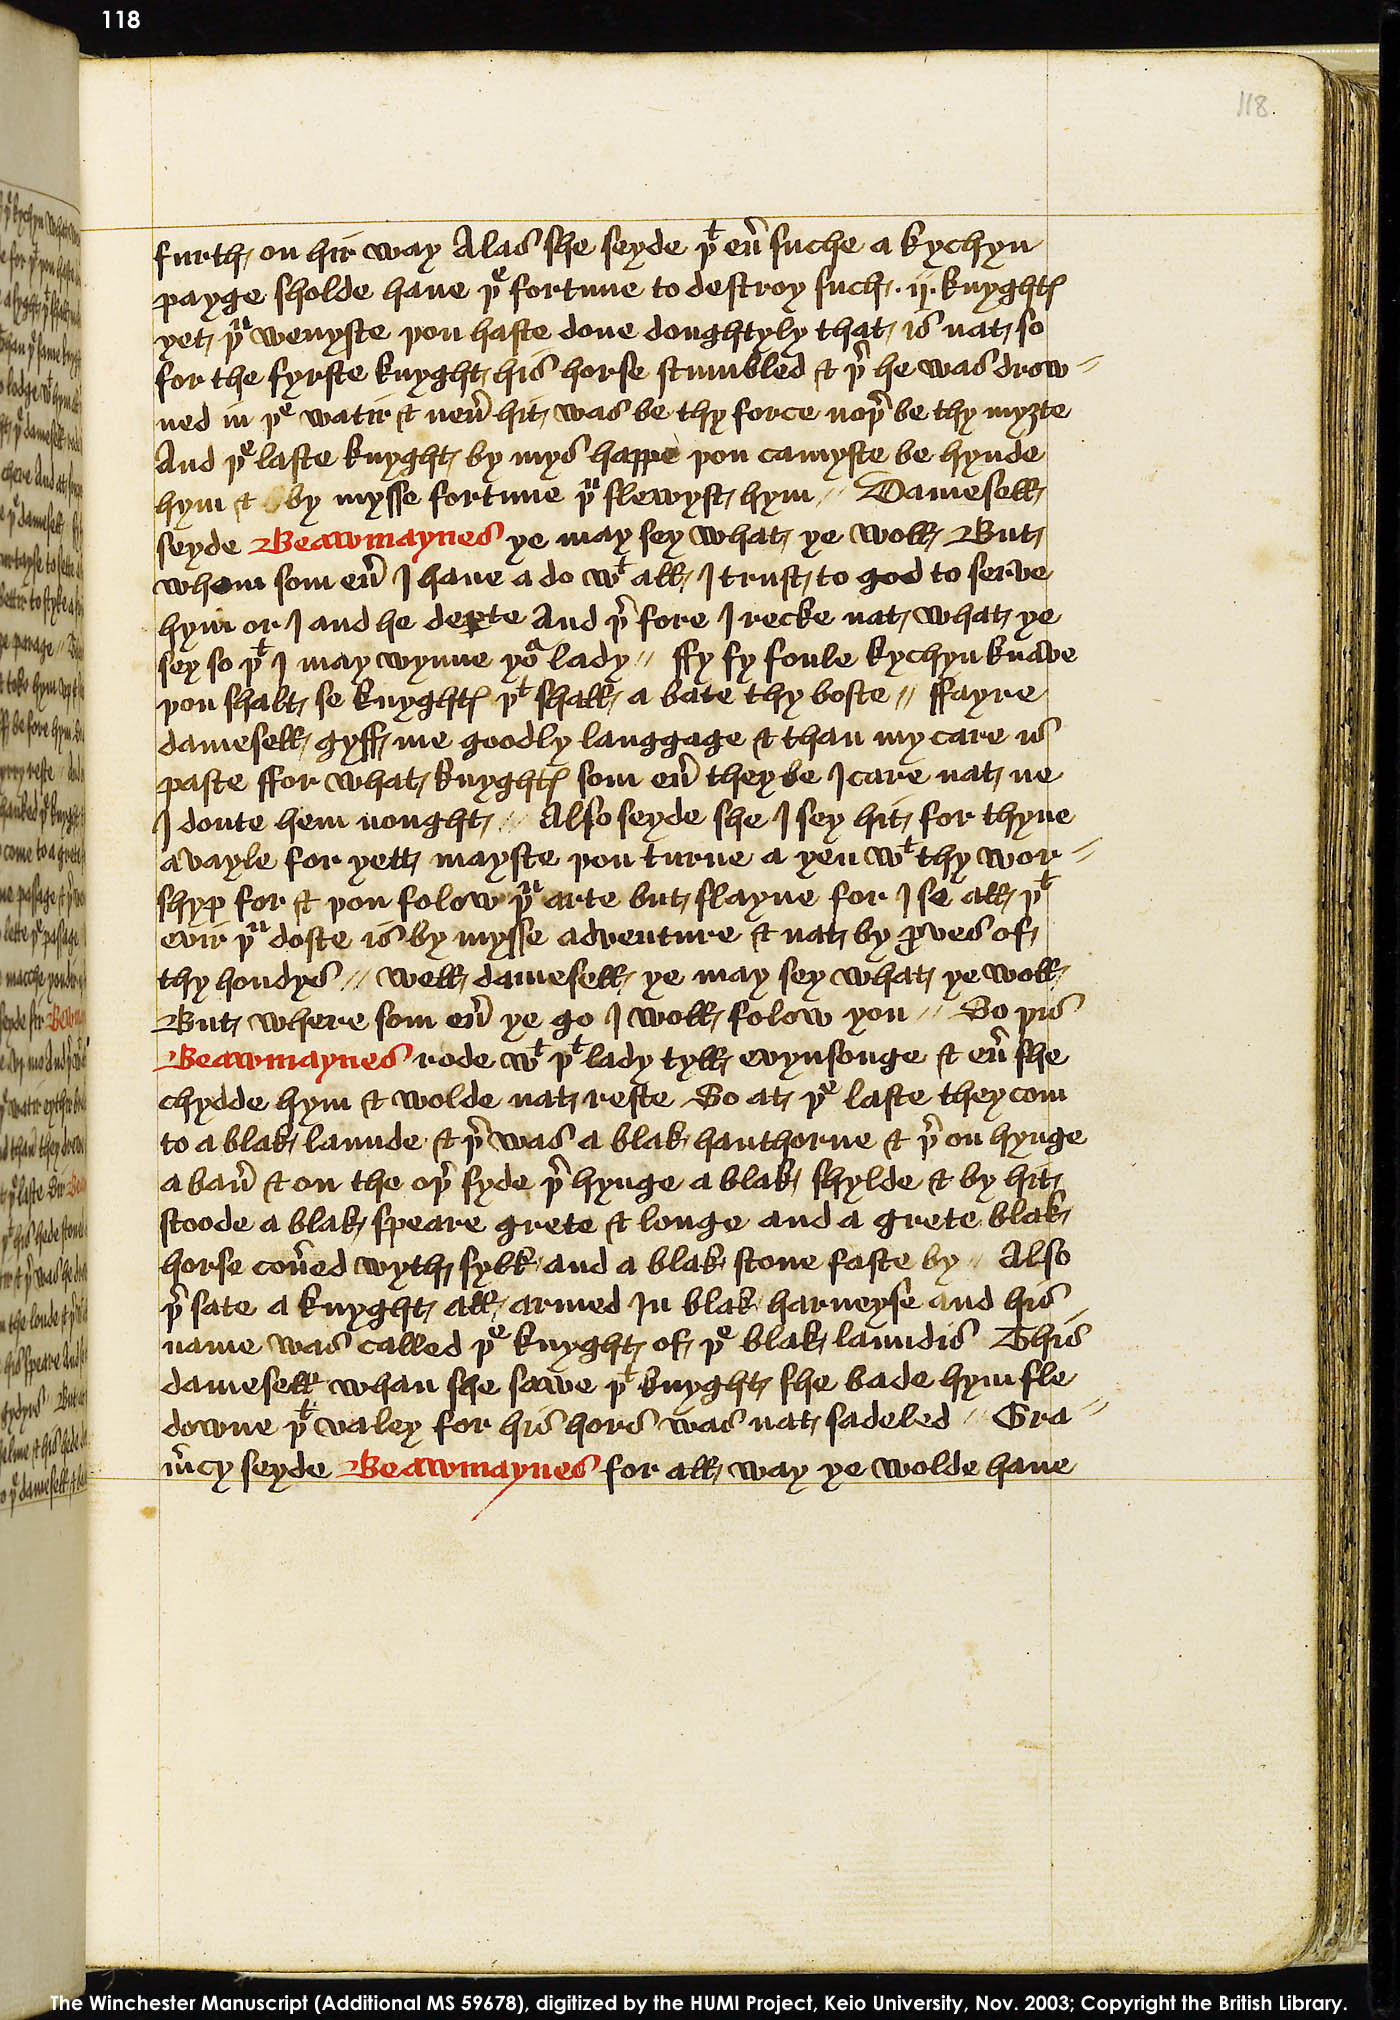 118
118
furth on hir way Alas she seyde þᵗ eũ suche a kychyn
payge sholde haue þᵉ fortune to destroy such · ij · knyghtꝭ
yet þᵘ wenyste þou haste done doughtyly that is nat so
for the fyrste knyght his horse stumbled & þ̃ he was drow⸗
ned in þᵉ watir & neũ hit was be thy force noþ̃ be thy myȝte
And þᵉ laste knyght by mys happe þou camyste be hynde
hym & by mysse fortune þᵘ slewyst hym // Damesell
seyde Beawmaynes ye may sey what ye woll But
whom som eũ I haue a do wᵗ all I trust to god to serve
hym or I and he departe And þ̃ fore I recke nat what ye
sey so þᵗ I may wynne yoᵘ lady // ffy fy foule kychyn knave
þou shalt se knyghtꝭ þᵗ shall a bate thy boste // ffayre
damesell gyff me goodly langgage & than my care is
paste ffor what knyghtꝭ som eũ they be I care nat ne
I doute hem nought // Also seyde she I sey hit for thyne
avayle for yett mayste þou turne a yen wᵗ thy wor⸗
shyp for & þou folow þᵘ arte but slayne for I se all þᵗ
evir þᵘ doste is by mysse adventure & nat by ꝓves of
thy hondys // well damesell ye may sey what ye woll
But where som eũ ye go I woll folow you // So þis
Beawmaynes rode wᵗ þᵗ lady tyll evynsonge & eũ she
chydde hym & wolde nat reste So at þᵉ laste they com
to a blak launde & þ̃ was a blak hauthorne & þ̃ on hynge
a bañ & on the oþ̃ syde þ̃ hynge a blak shylde & by hit
stoode a blak speare grete & longe and a grete blak
horse coũed wyth sylk and a blak stone faste by // Also
þ̃ sate a knyght all armed In blak harneyse and his
name was called þᵉ knyght of þᵉ blak laundis This
damesell whan she sawe þᵗ knyght she bade hym fle
downe þᵗ valey for his hors was nat sadeled // Gra⸗
m̃cy seyde Beawmaynes for all way ye wolde haue
The Winchester Manuscript (Additional MS 59678), digitized by the HUMI Project, Keio University, Nov. 2003; Copyright the British Library.